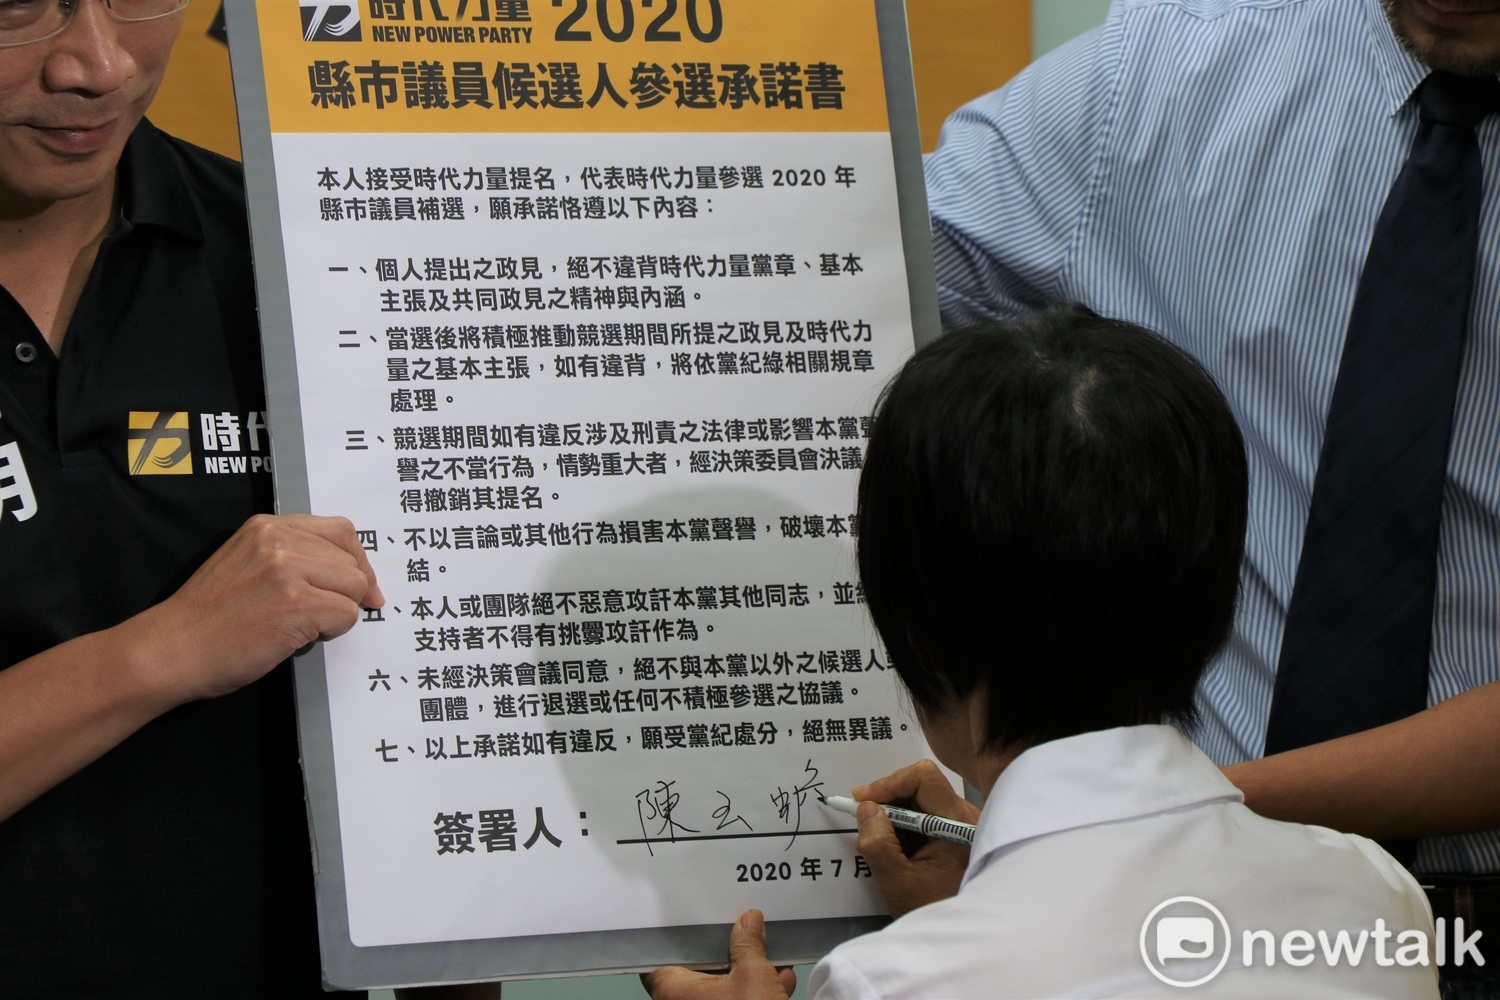 時代力量 2020
NEW POWER PARTY
縣市議員候選人參選承諾書
本人接受時代力量提名，代表時代力量參選 2020 年
縣市議員補選，願承諾恪遵以下內容：
一、個人提出之政見，絕不違背時代力量黨章、基本
主張及共同政見之精神與內涵。
二、當選後將積極推動競選期間所提之政見及時代力
量之基本主張，如有違背，將依黨紀綠相關規章
處理。
三、競選期間如有違反涉及刑責之法律或影響本黨聲
譽之不當行為，情勢重大者，經決策委員會決議
得撤銷其提名。
四、不以言論或其他行為損害本黨聲譽，破壞本黨
結。
五、本人或團隊絕不惡意攻訐本黨其他同志，並
支持者不得有挑釁攻訐作為。
六、未經決策會議同意，絕不與本黨以外之候選人或
團體，進行退選或任何不積極參選之協議。
七、以上承諾如有違反，願受黨紀處分，絕無異議。
簽署人： 陳玉
2020 年 7 月
時代
NEW PO
newtalk